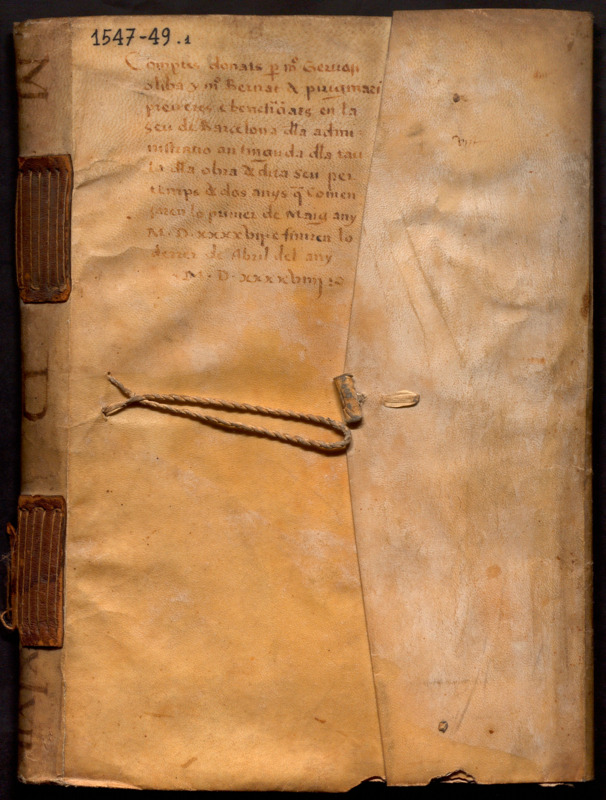 1547-49.1
Comptes donats p mº Gervasi
oliba y mº Bernat de puigmari
preveres e beneficiats en la
seu de Barcelona dla admi
nistratio antiguada dla tau
la dla obra de dita seu per
temps de dos anys q comen
saren lo primer de Maig any
M·D·xxxxvij e finiren lo
derrer de Abril del any
M·D·xxxxviiij
M
D